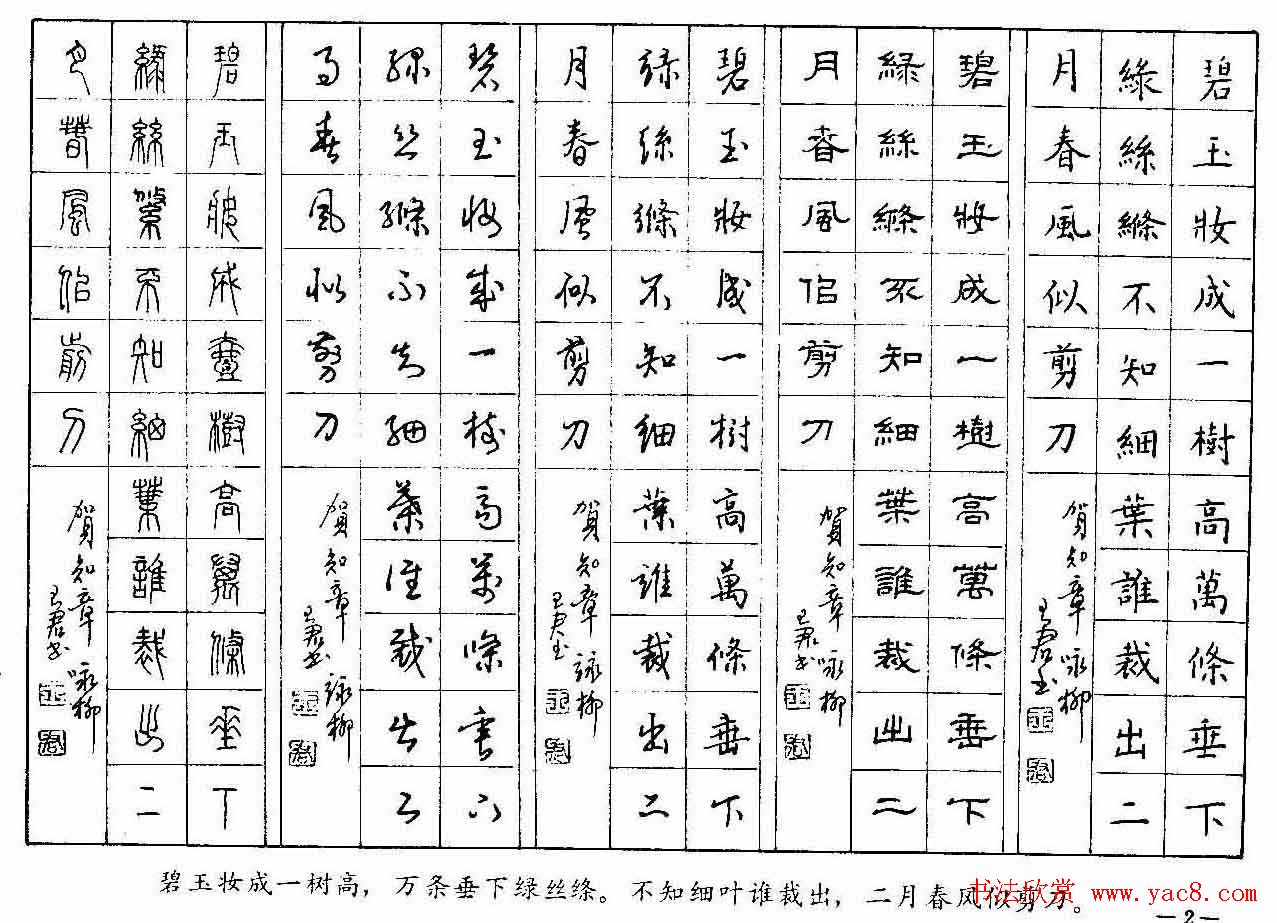 碧玉妝成一樹高萬條垂下
綠絲縧不知細葉誰裁出二
月春風似剪刀
賀知章咏柳
王君书
碧玉妝成一樹高萬條垂下
綠絲縧不知細葉誰裁出二
月春風似剪刀
賀知章咏柳
王君书
碧玉妝成一樹高萬條垂下
綠絲縧不知細葉誰裁出二
月春風似剪刀
賀知章詠柳
王君书
碧玉妝成一樹高萬條垂下
綠絲縧不知細葉誰裁出二
月春風似剪刀
賀知章詠柳
王君书
碧玉妝成壹樹高萬條垂下
綠絲縧不知細葉誰裁出二
月春風似剪刀
賀知章咏柳
王君书
碧玉妆成一树高，万条垂下绿丝绦。不知细叶谁裁出，二月春风似剪刀。
书法欣赏 www.yac8.com
—2—